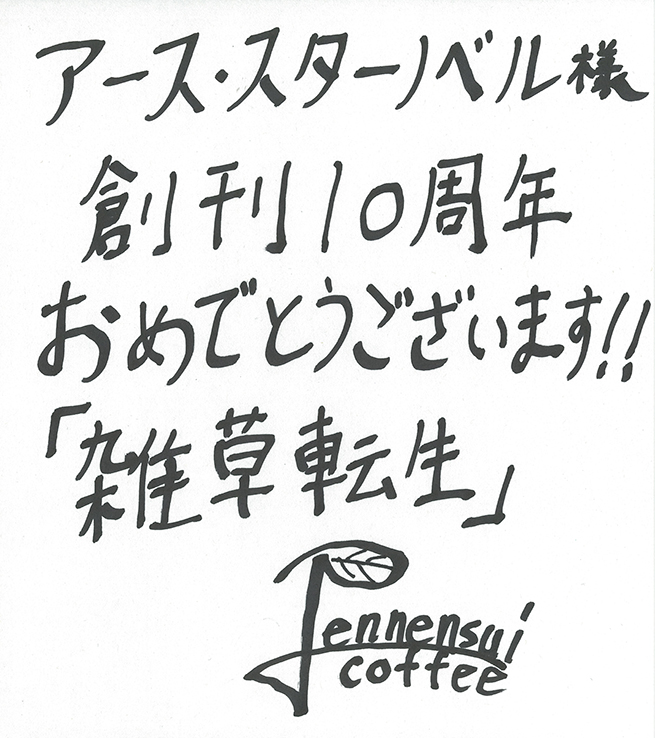 アース・スターノベル様
創刊10周年
おめでとうございます!!
「雑草転生」
Tennensui
coffee